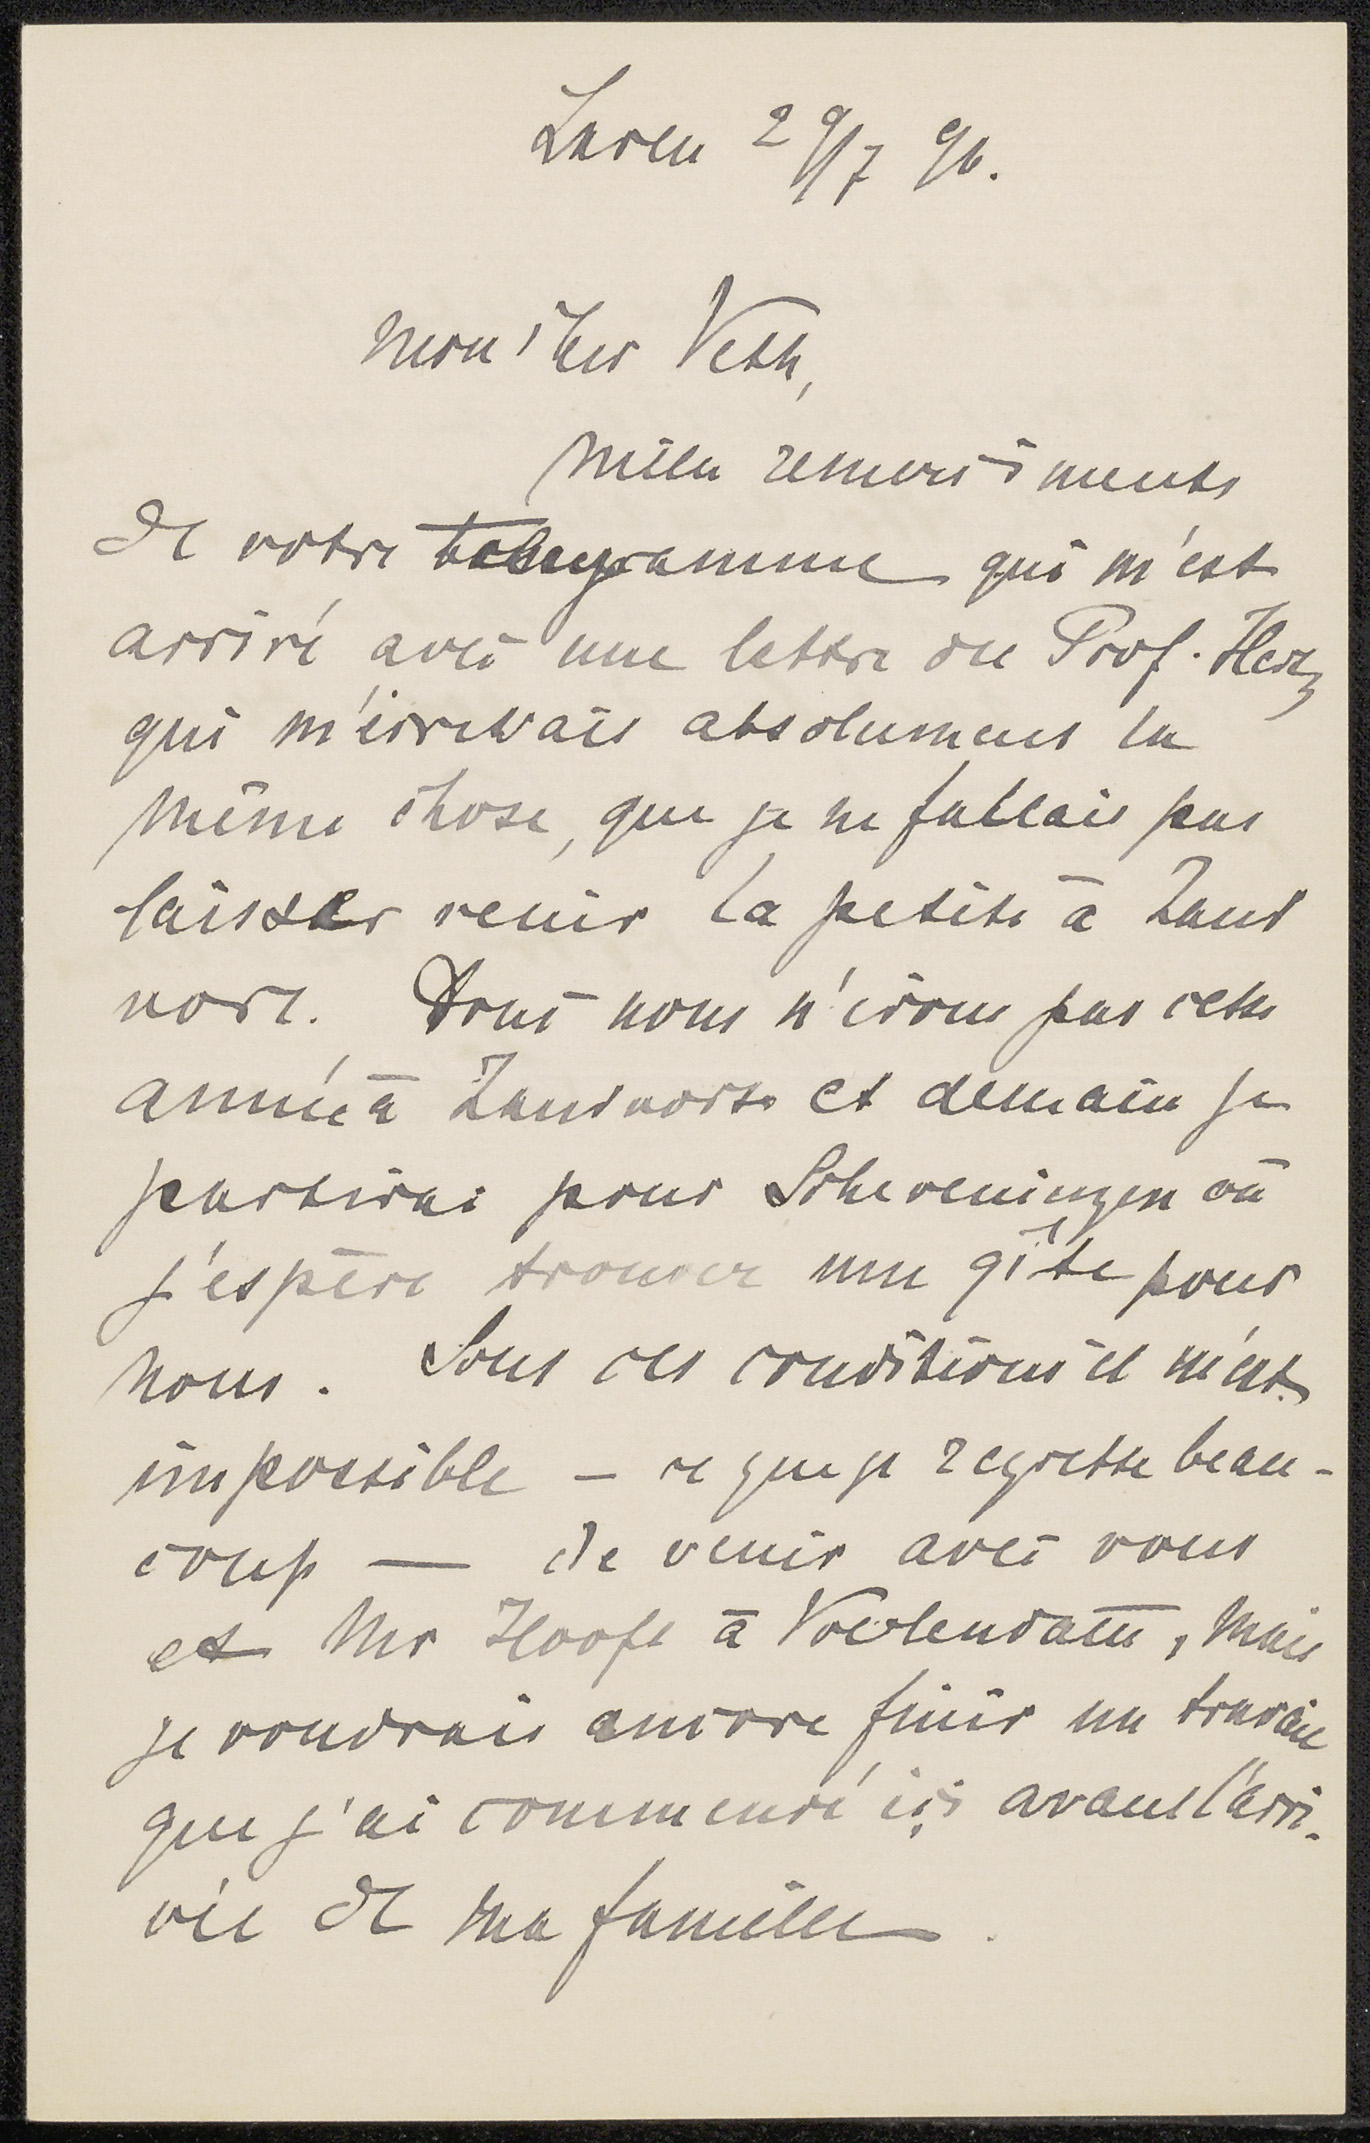 Laren 29/7 96.
Mon cher Veth,
Mille remerciments
de votre telegramme qui m'est
arrivé avec une lettre du Prof. Herz
qui m'écrivais absolument la
même chose, que je ne fallais pas
laisser venir la petite à Zand
vort. Donc nous n'irons pas cette
année à Zandvort et demain je
partirai pour Scheveningen où
j'espère trouver une gîte pour
nous. Sous ces conditions il m'est
impossible — ce que je regrette beau-
coup — de venir avec vous
et Mr Hooft à Voolendam, mais
je voudrais encore finir un travail
que j'ai commencé ici avant l'arri-
vée de ma famille.